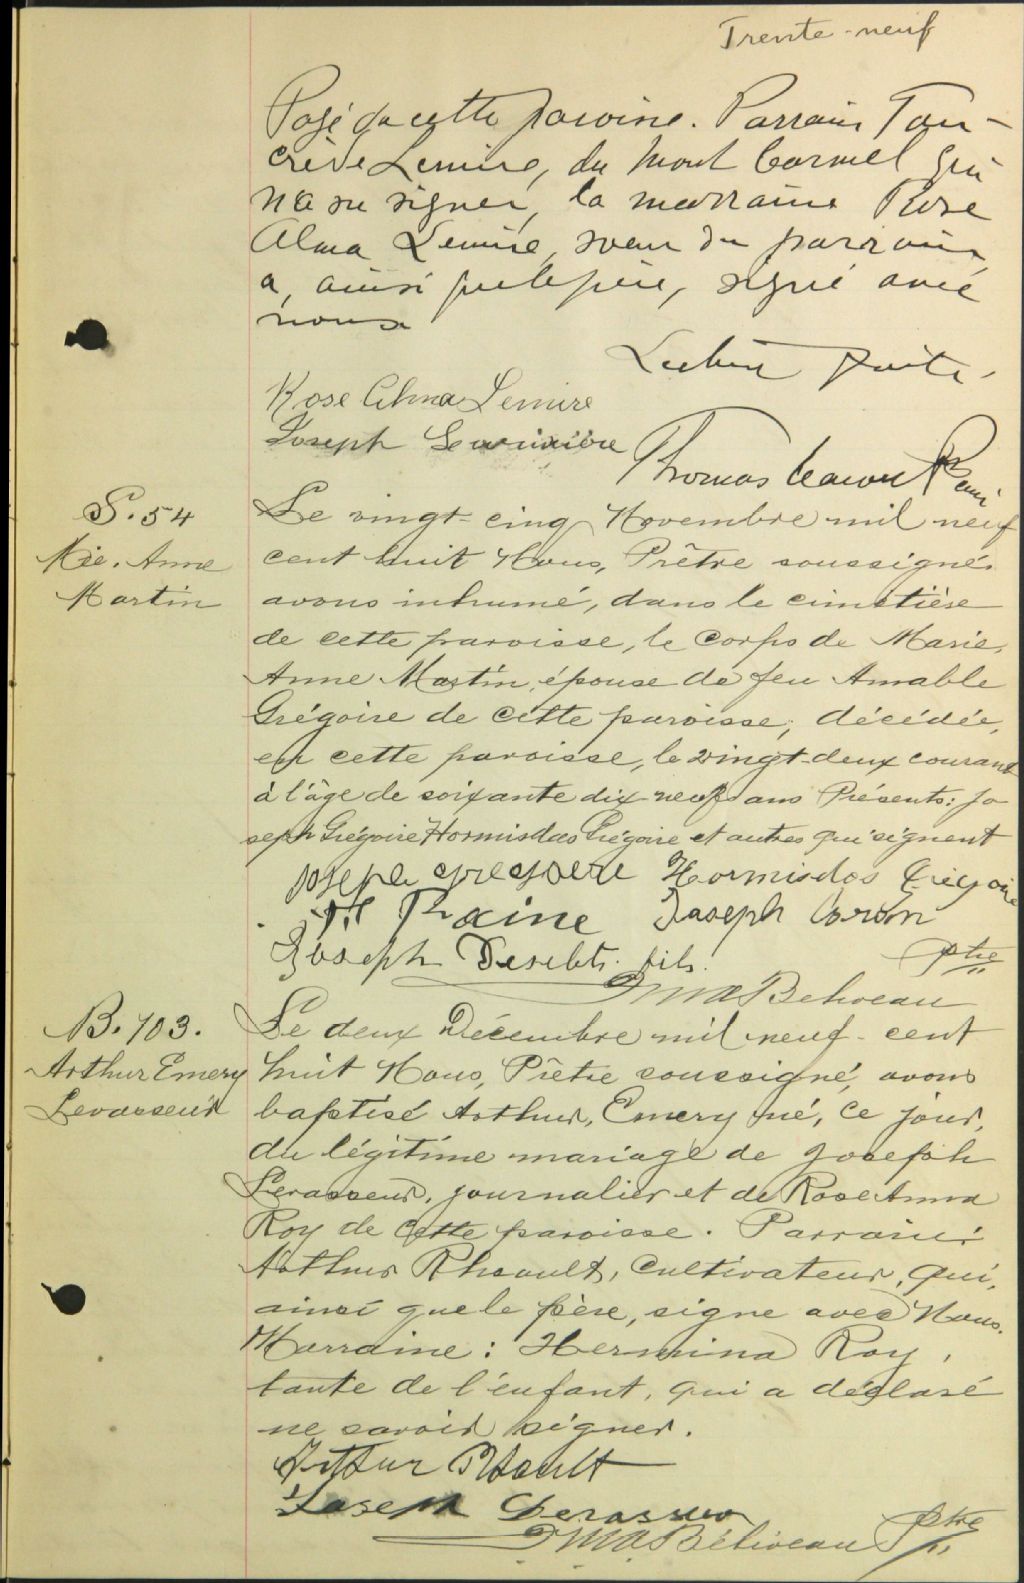 Trente-neuf
cette paroisse. Parrain Tan-
crède Lemire, du Mont Carmel qui
n'a su signer, la marraine Rose
Alma Lemire, soeur du parrain,
a, ainsi que le père, signé avec
nous
Rose Alma Lemire
Joseph
Thomas
S. 54
Mie. Anne
Martin
Le vingt-cinq Novembre mil neuf
cent huit Nous, Prêtre soussigné,
avons inhumé, dans le cimetière
de cette paroisse, le corps de Marie,
Anne Martin, épouse de feu Amable
Grégoire de cette paroisse, décédée,
en cette paroisse, le vingt-deux courant
à l'âge de soixante dix-neuf ans Présents: Jo
seph Grégoire Hormisdas Grégoire et autres qui signent
joseph gregoere Hormisdos Grégoire
Racine Joseph Caron
Joseph Desilets fils.
ptre
Beliveau
B. 103.
Arthur Emery
Levasseur
Le deux Décembre mil neuf-cent
huit Nous, Prêtre soussigné, avons
baptisé Arthur, Emery né, ce jour,
du légitime mariage de Joseph
Levasseur, journalier et de Rose Anna
Roy de cette paroisse. Parrain:
Arthur Rheault, cultivateur, qui,
ainsi que le père, signe avec Nous.
Marraine: Hermina Roy,
tante de l'enfant, qui a déclaré
ne savoir signer.
Arthur Rheault
Joseph Levasseur
MABéliveau ptre